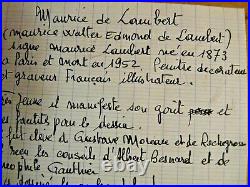 Maurice de Lambert
(maurice Walter Edmond de Lambert)
signe maurice Lambert né en 1873
à Paris et mort en 1952. Peintre décorateur
et graveur Français illustrateur.
jeune il manifeste son goût et
pour le dessin.
fut élève d'Gustave Moreau et de Rochegrosse
reçu les conseils d'Albert Besnard et de
Théophile Gauthier